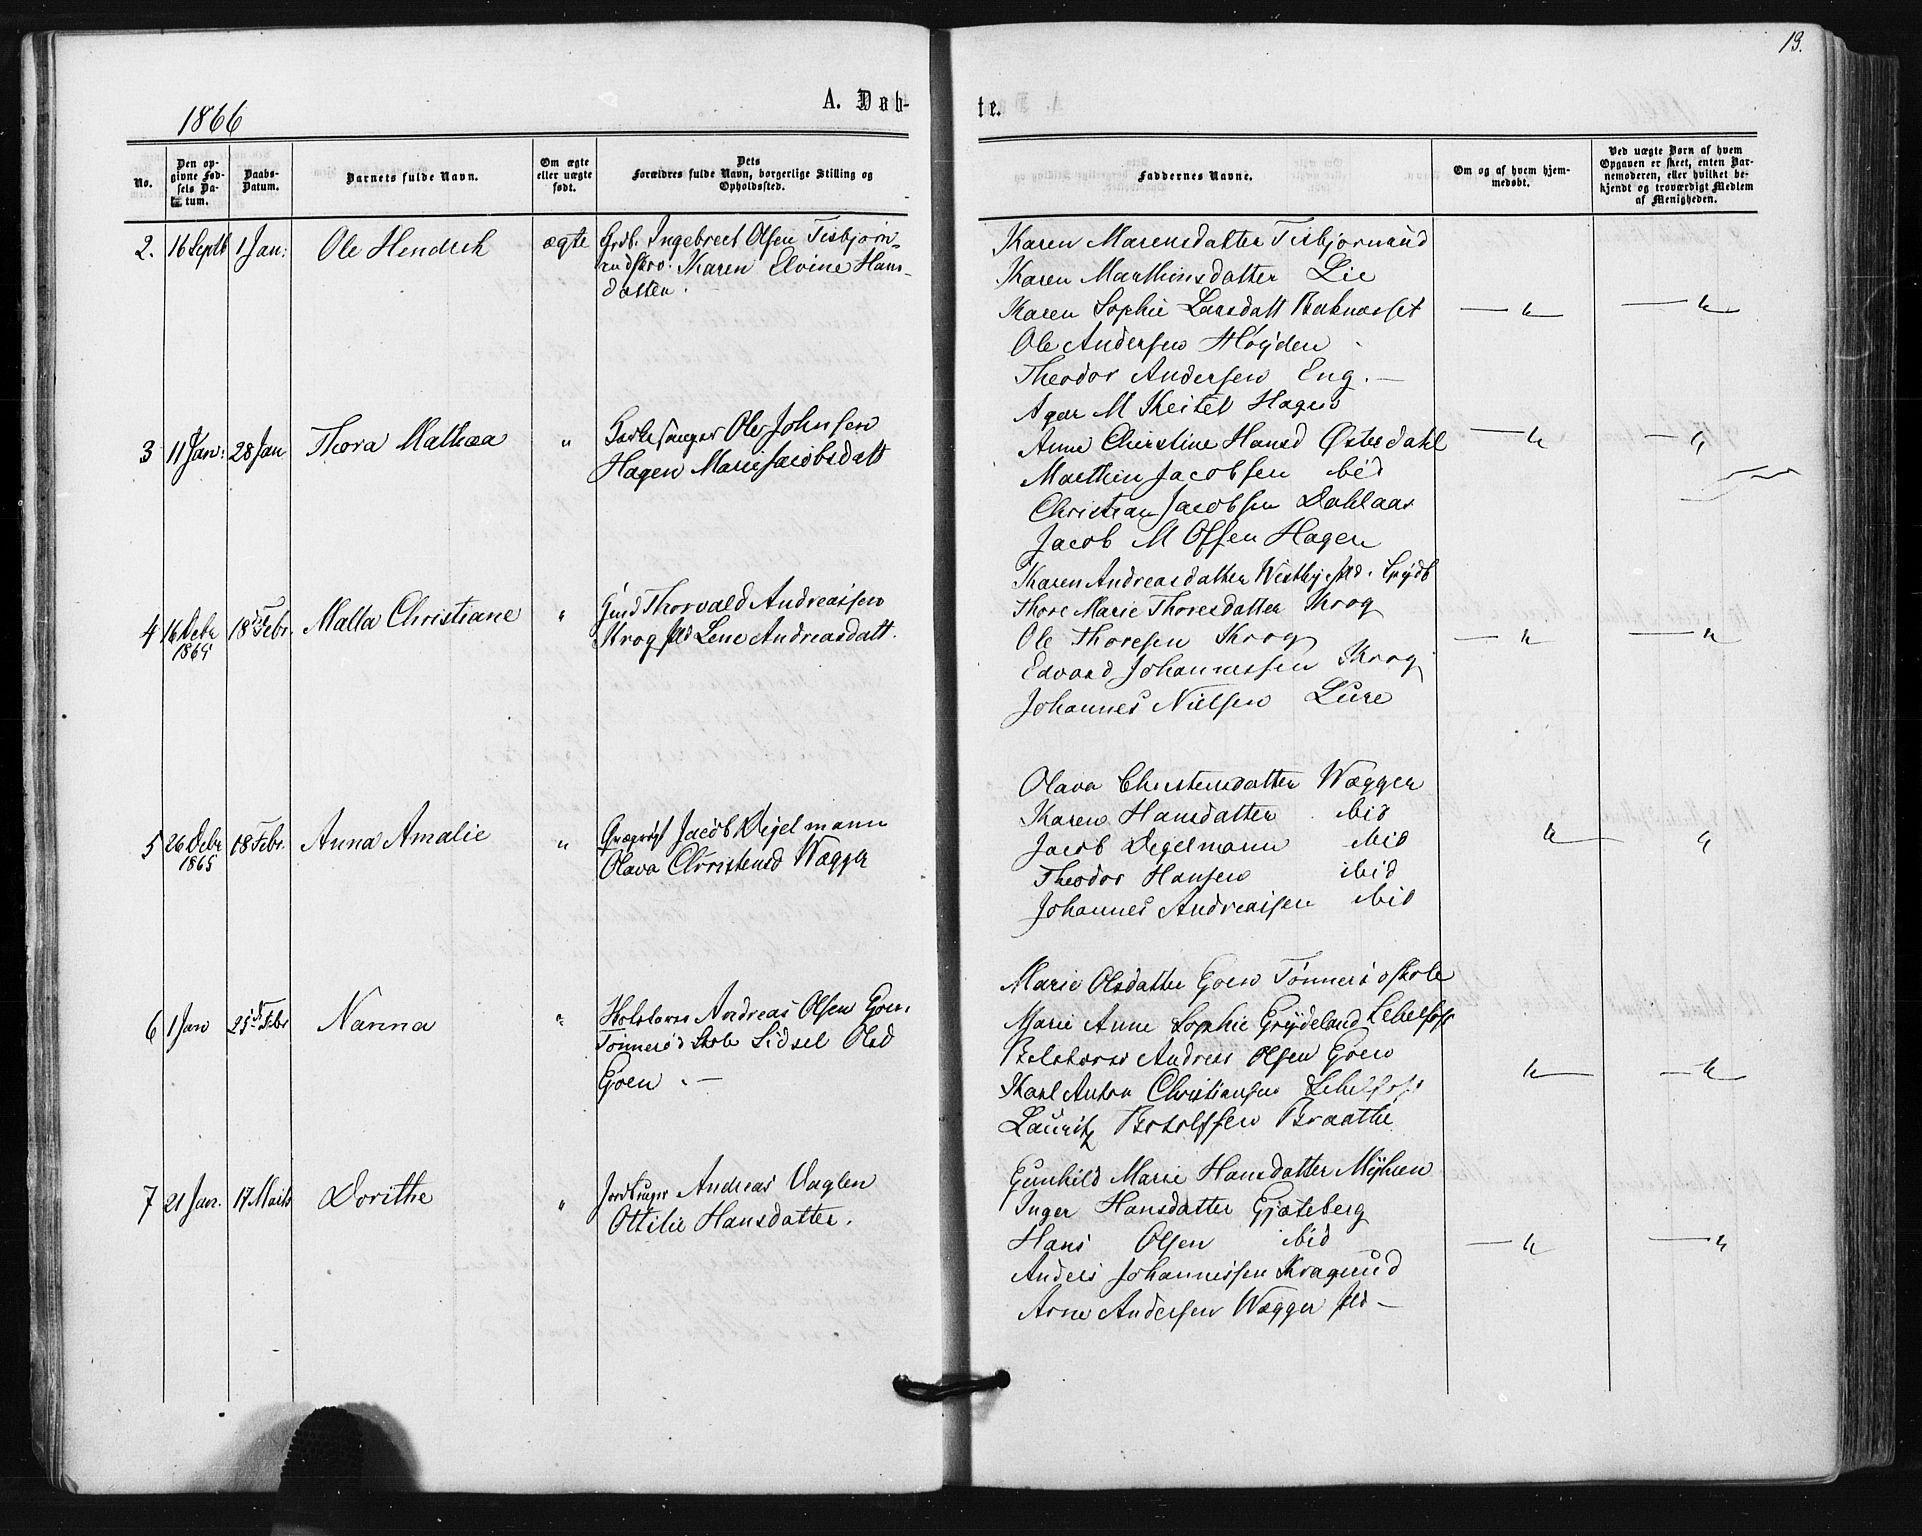 13.
1866
A. Døb-
te.
No.
Den op-
givne Fød-
sels Da-
tum.
Daabs-
Datum.
Barnets fulde Navn.
Om ægte
eller uægte
født.
Dets
Forældres fulde Navn, borgerlige Stilling og
Opholdssted.
Faddernes Navne.
Om og af hvem hjem-
medøbt.
Ved uægte Børn af hvem
Opgaven er skeet, enten Bar-
nemoderen, eller hvilket be-
kjendt og troværdigt Medlem
af Menigheden.
2. 16 Septb 1 Jan: Ole Hendrik ægte
Grdb. Ingebret Olsen Tisbjørn-
Karen Elvine Hans-
datter.
Karen Marensdatter Tisbjørnrud
Karen Marthinsdatter Lie
Karen Sophie Larsdatt
Ole Andersen Høyden
Theodor Andersen Eng. —
3 11 Jan: 28 Jan Thora Mathea "
Kirkesanger Ole Johnsen
Hagen Marie Jacobsdatt
M Keitel Hagen
Anne Christine Hansd Østerdahl
Marthin Jacobsen ibid
Christian Jacobsen Dahlaas
Jacob M Olsen Hagen
4 16 Debr 1865 18de Febr. Malla Christiane "
Thorvald Andreassen
Krog Lene Andreasdatt.
Karen Andreasdatter Westby
Thore Marie Thoresdatter Krog
Ole Thoresen Krog
Edvard Johannessen Krog
Johannes Nielsen Lure
5 26 Debr 1865 18 Febr. Anna Amalie "
Jacob Digelmann
Olava Christensd Wægger
Olava Christensdatter Wægger
Karen Hansdatter ibid
Jacob Digelmann ibid
Theodor Hansen ibid
Johannes Andreassen ibid
6 1 Jan 25de Febr Nanna "
Andreas Olsen Goen,
Tønnerød Skole Sidsel Olsd
Goen . —
Marie Olsdatter Goen Tønnerøskole
Marie Anne Sophie Grydeland
Andreas Olsen Goen
Karl Anton Christiansen
Lauritz Botolfsen Braathe
7 21 Jan. 17 Marts Dorithe "
Jordbruger Andreas Daglen
Ottilie Hansdatter.
Gunhild Marie Hansdatter Myhren
Inger Hansdatter Gjøteberg
Hans Olsen ibid
Anders Johannessen Kragerud
Arne Andersen Wægger